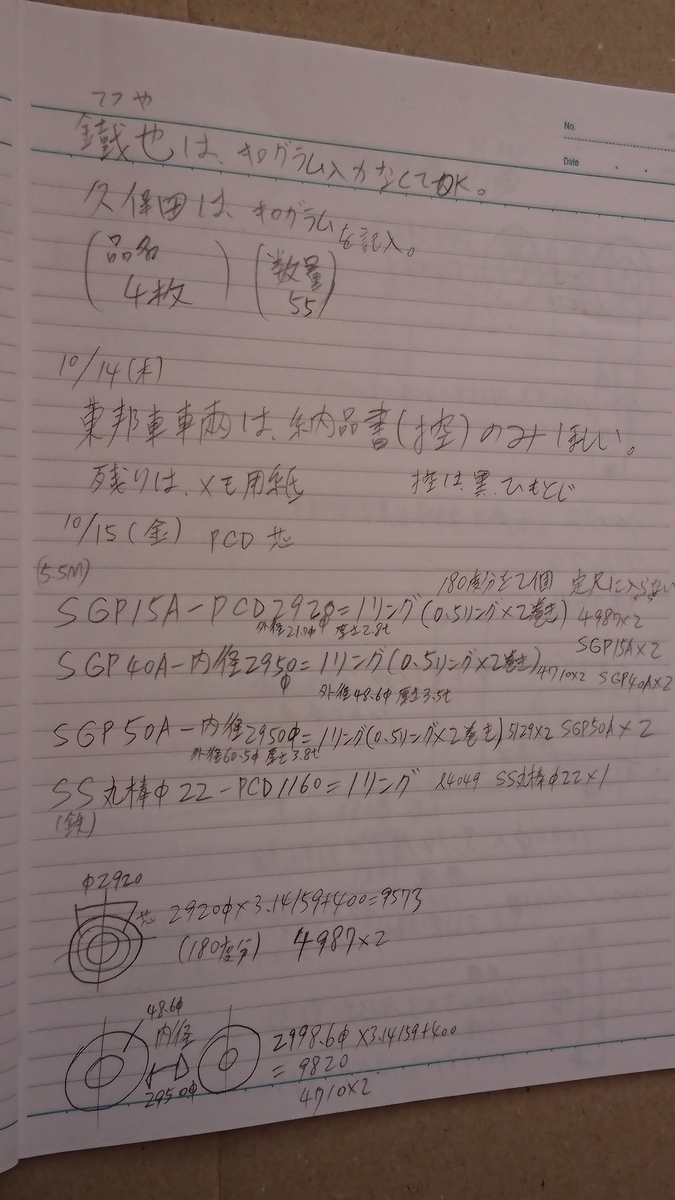 テツや
No.
鐵也は、キログラム入力なくてOK。
Date
久保田は、キログラムを記入。
(品名 4枚) (数量 55)
10/14(木)
東邦車輌は、納品書(控)のみほしい。
残りは、メモ用紙 控は黒ひもとじ
10/15(金) PCD 芯
(5.5M)
180度分を2個 定尺に入らない
SGP15A-PCD2920=1リング(0.5リング×2巻き) 4987×2
外径21.7φ 厚さ2.8t
SGP15A×2
SGP40A-内径2950φ=1リング(0.5リング×2巻き) 4910×2 SGP40A×2
外径48.6φ 厚さ3.5t
SGP50A-内径2950φ=1リング(0.5リング×2巻き) 5129×2 SGP50A×2
外径60.5φ 厚さ3.8t
SS丸棒φ22-PCD1160=1リング ℓ4049 SS丸棒φ22×1
(鉄)
φ2920
芯
2920φ×3.14159+400=9573
(180度分) 4987×2
48.6φ
内径
2950φ
2998.6φ×3.14159+400
=9820
4910×2